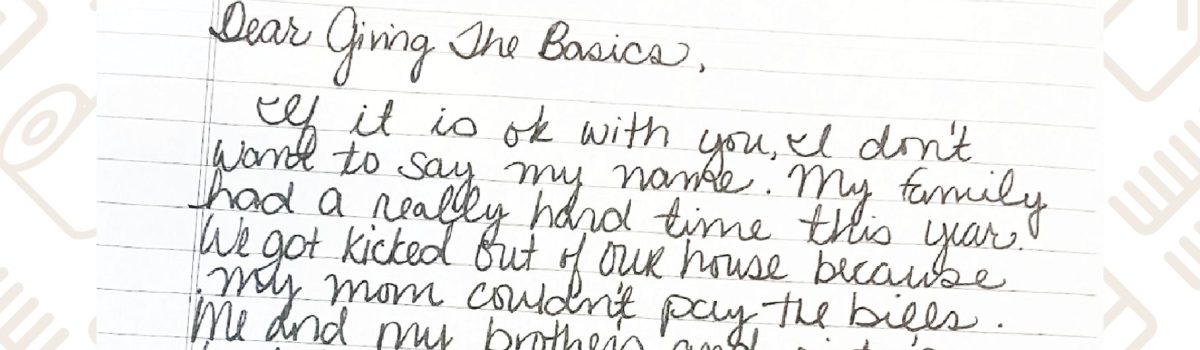 Dear Giving The Basics,
If it is ok with you, I don't
want to say my name. My family
had a really hard time this year.
We got kicked out of our house because
my mom couldn't pay the bills.
Me and my brothers and